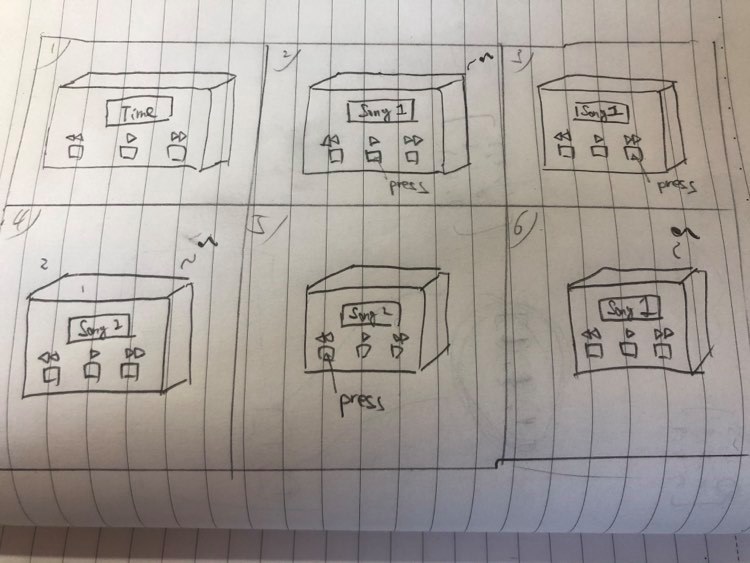 1)
Time
2)
Song 1
press
3)
Song 1
press
4)
2
1
Song 2
5)
Song 2
press
6)
Song 1